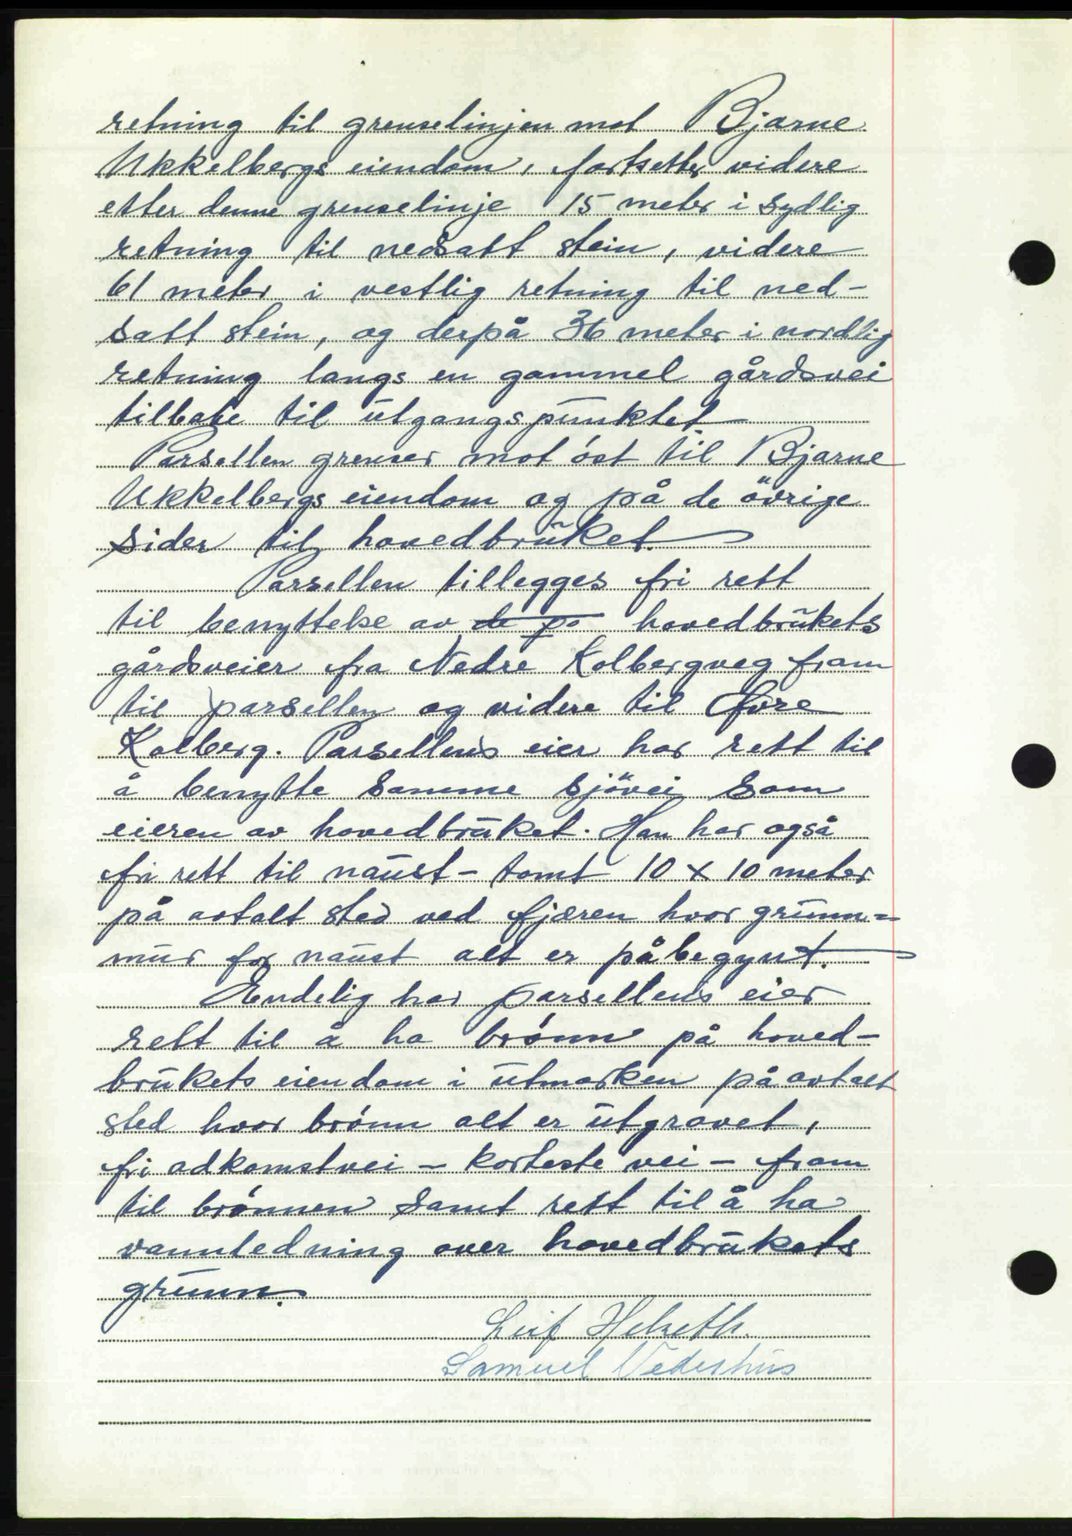 retning til grenselinjen mot Bjarne
Ukkelbergs eiendom, fortsetter videre
etter denne grenselinje 15 meter i sydlig
retning til nedsatt stein, videre
61 meter i vestlig retning til ned-
satt stein, og derpå 36 meter i nordlig
retning langs en gammel gårdsvei
tilbake til utgangspunktet
Parsellen grenser mot öst til Bjarne
Ukkelbergs eiendom og på de övrige
sider til hovedbruket.
Parsellen tillegges fri rett
til benyttelse av de på hovedbrukets
gårdsveier fra Nedre Kolbergveg fram
til parsellen og videre til Øvre
Kolberg. Parsellens eier har rett til
å benytte samme sjövei som
eieren av hovedbruket. Han har også
fri rett til naust-tomt 10 x 10 meter
på avtalt sted ved fjæren hvor grunn-
mur for naust alt er påbegynt.
Endelig har parsellens eier
rett til å ha brönn på hoved-
brukets eiendom i utmarken på avtalt
sted hvor brönn alt er utgravet,
fri adkomstvei - korteste vei - fram
til brönnen samt rett til å ha
vannledning over hovedbrukets
grunn.
Leif Helseth.
Samuel Vederhus